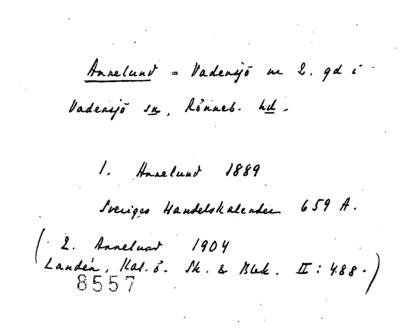 Annelund = Vadensjö nr 2. gd i
Vadensjö sn, Rönneb. hd.
1. Annelund 1889
Sveriges Handelskalender 659 A.
(2. Annelund 1904
Landén, Kal. ö. Sk. & Blek. II: 488.)
8557